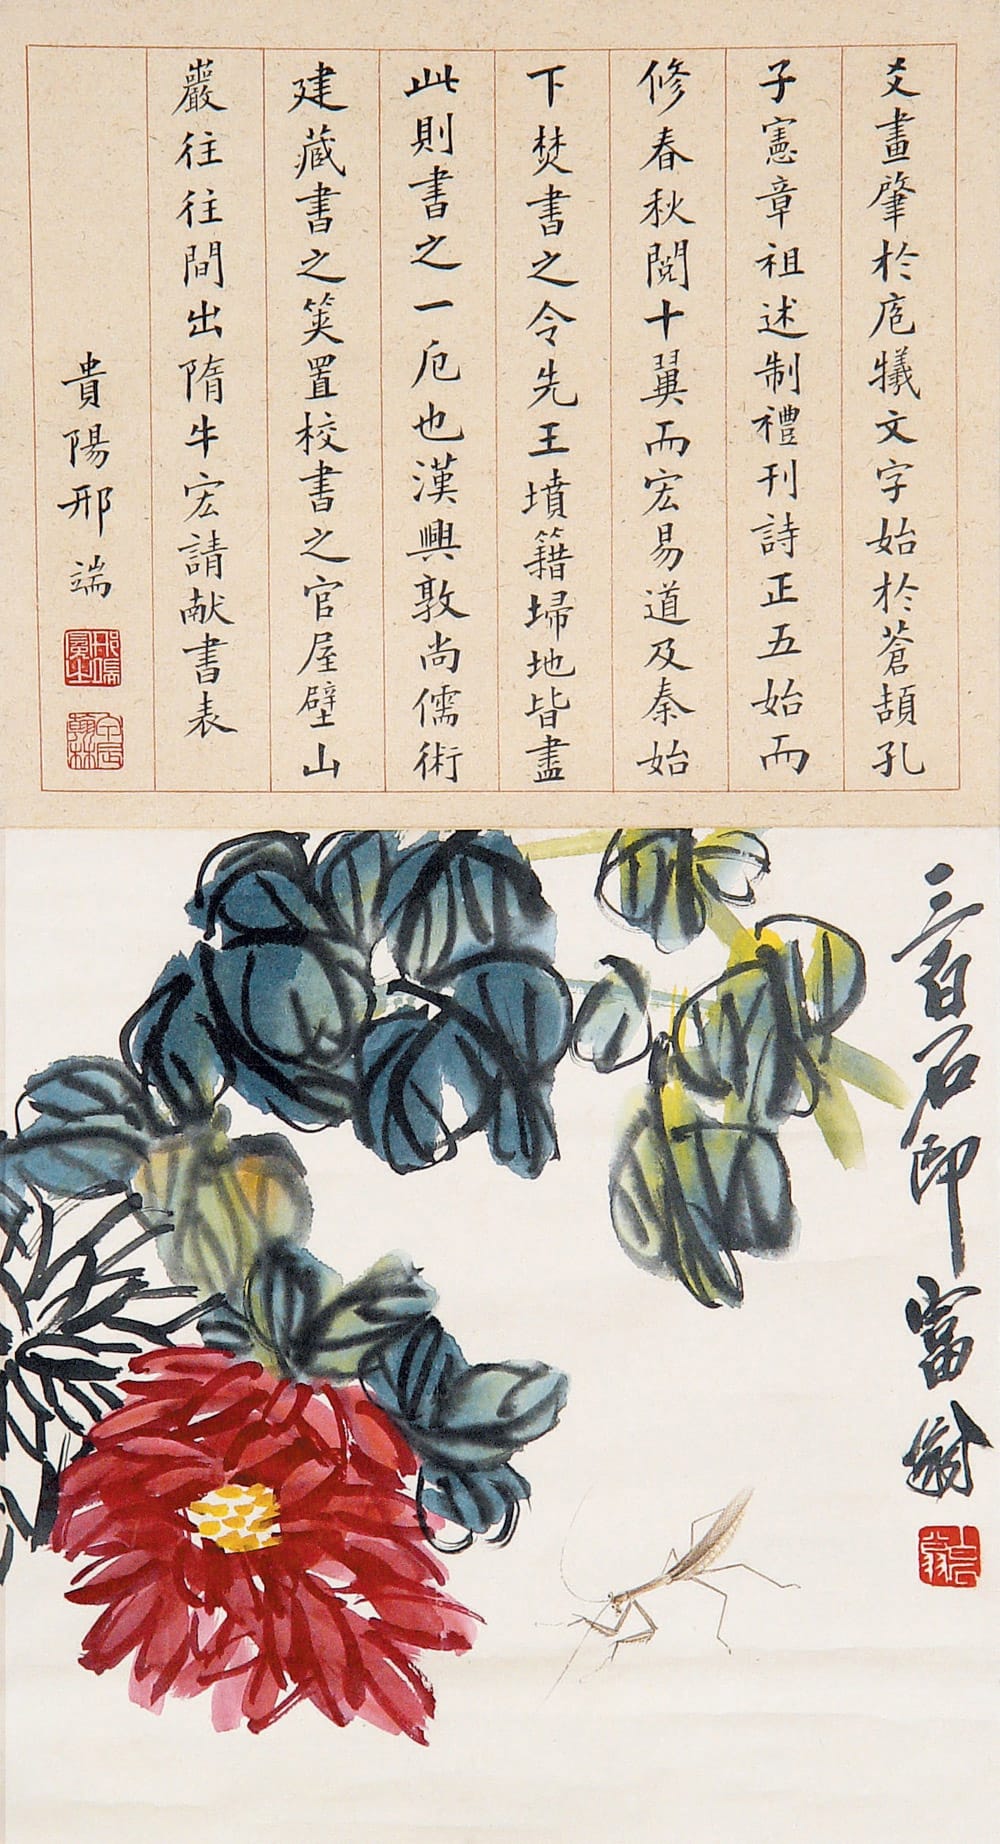 爻畫肇於庖犧文字始於蒼頡孔
子憲章祖述制禮刊詩正五始而
修春秋閱十翼而宏易道及秦始
下焚書之令先王墳籍埽地皆盡
此則書之一厄也漢興敦尚儒術
建藏書之筴置校書之官屋壁山
巖往往間出隋牛宏請献書表
貴陽邢端
邢端
翰林
三百石印富翁